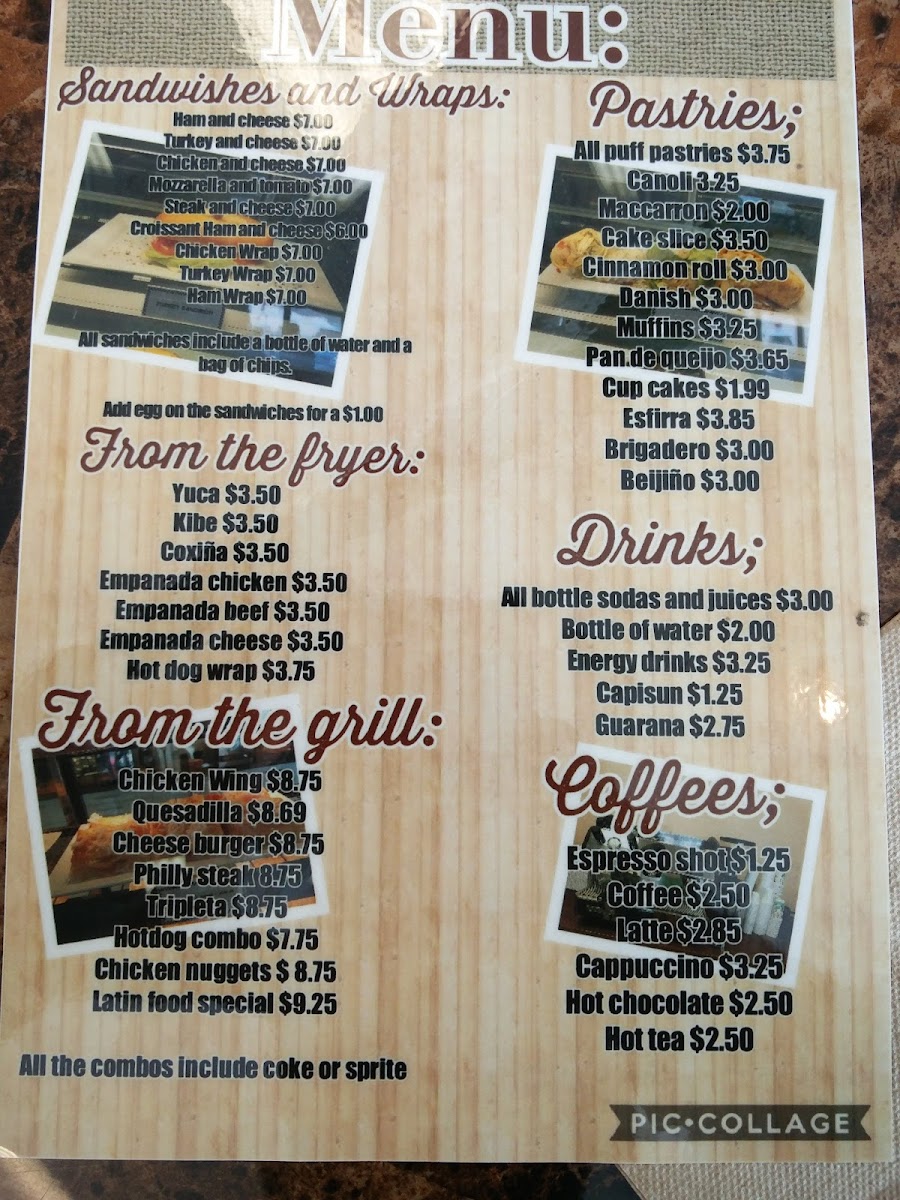 Menu:
Sandwishes and Wraps:
Ham and cheese $7.00
Turkey and cheese $7.00
Chicken and cheese $7.00
Mozzarella and tomato $7.00
Steak and cheese $7.00
Croissant Ham and cheese $6.00
Chicken Wrap $7.00
Turkey Wrap $7.00
Ham Wrap $7.00
All sandwiches include a bottle of water and a
bag of chips.
Add egg on the sandwiches for a $1.00
From the fryer:
Yuca $3.50
Kibe $3.50
Coxiña $3.50
Empanada chicken $3.50
Empanada beef $3.50
Empanada cheese $3.50
Hot dog wrap $3.75
From the grill:
Chicken Wing $8.75
Quesadilla $8.69
Cheese burger $8.75
Philly steak 8.75
Tripleta $8.75
Hotdog combo $7.75
Chicken nuggets $ 8.75
Latin food special $9.25
All the combos include coke or sprite
Pastries;
All puff pastries $3.75
Canoli 3.25
Maccarron $2.00
Cake slice $3.50
Cinnamon roll $3.00
Danish $3.00
Muffins $3.25
Pan.de queijo $3.65
Cup cakes $1.99
Esfirra $3.85
Brigadero $3.00
Beijiño $3.00
Drinks;
All bottle sodas and juices $3.00
Bottle of water $2.00
Energy drinks $3.25
Capisun $1.25
Guarana $2.75
Coffees;
Espresso shot $1.25
Coffee $2.50
Latte $2.85
Cappuccino $3.25
Hot chocolate $2.50
Hot tea $2.50
PIC•COLLAGE